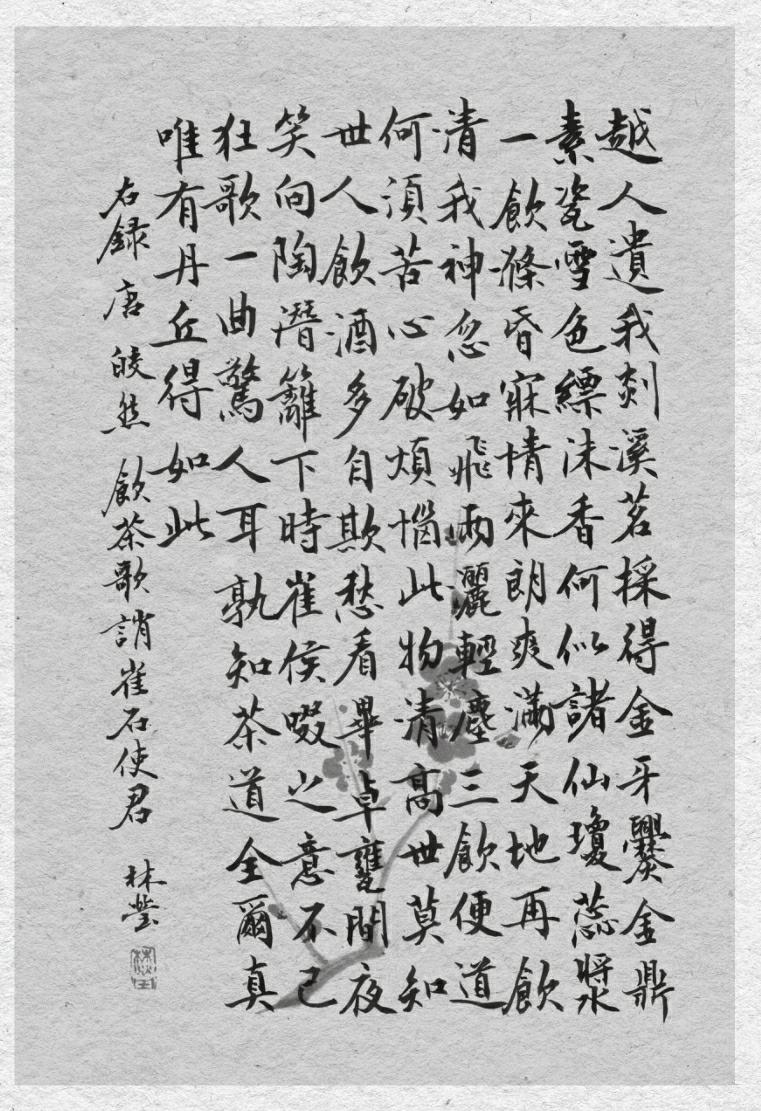 越人遺我剡溪茗採得金牙爨金鼎
素瓷雪色縹沫香何似諸仙瓊蕊漿
一飲滌昏寐情來朗爽滿天地再飲
清我神忽如飛雨灑輕塵三飲便道
何須苦心破煩惱此物清高世莫知
世人飲酒多自欺愁看畢卓甕間夜
笑向陶潛籬下時崔侯啜之意不已
狂歌一曲驚人耳孰知茶道全爾真
唯有丹丘得如此
右録唐皎然飲茶歌誚崔石使君
林瑩